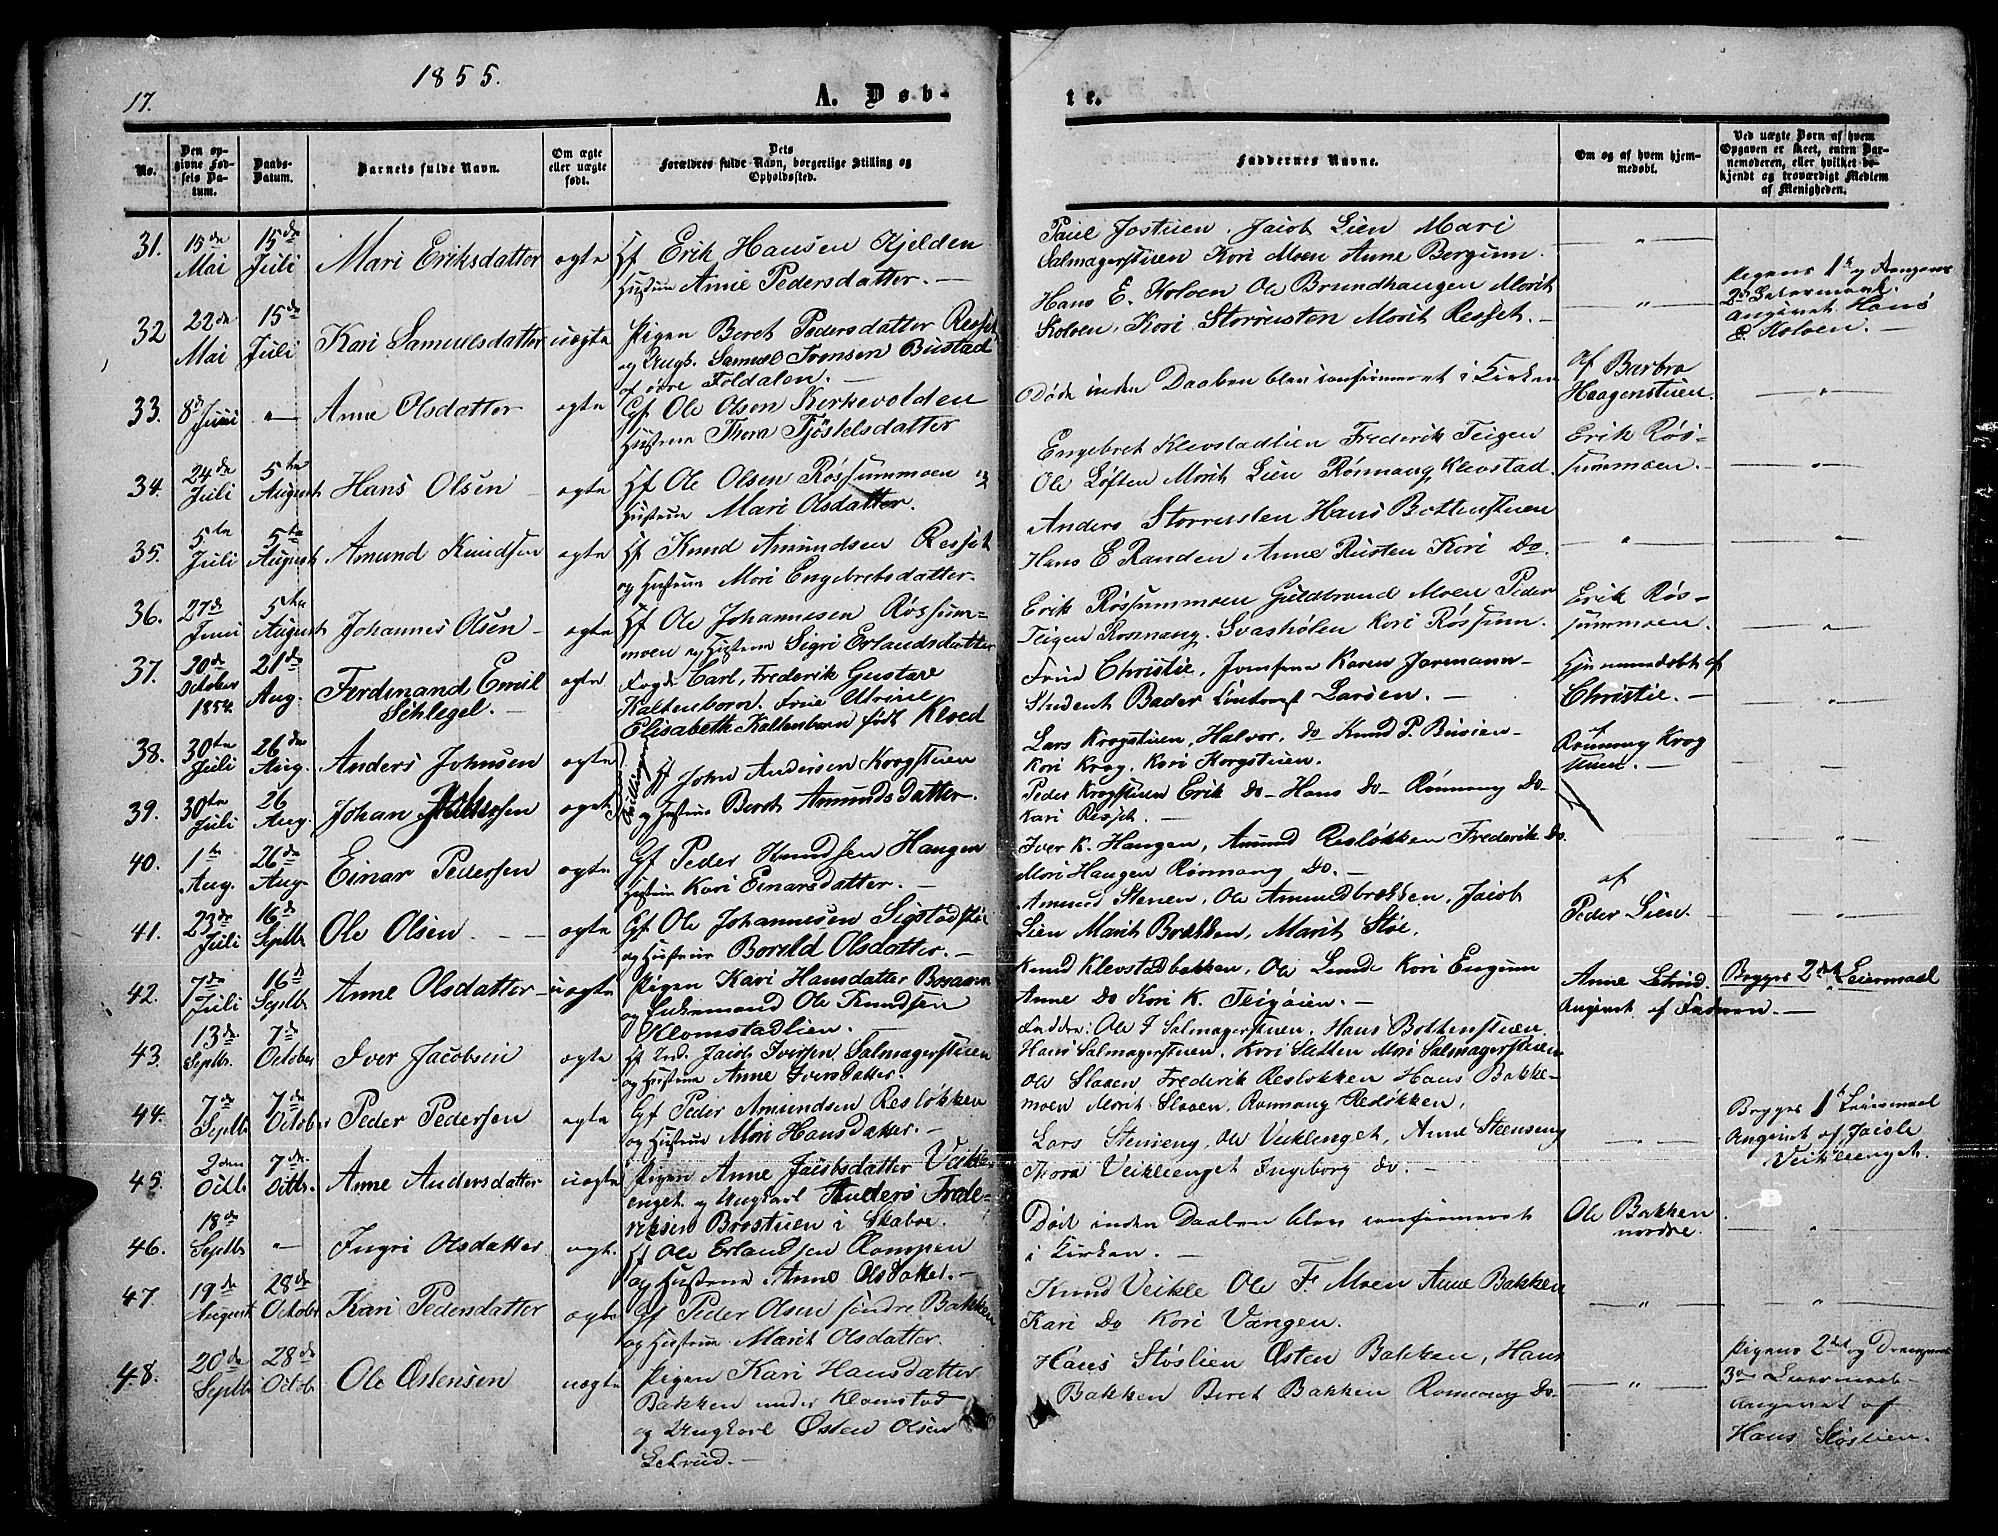 1855.
17.
A. Døb-
te.
No.
Den opgivne Fødsels Datum.
Daabs-Datum.
Barnets fulde Navn.
Om ægte eller uægte født.
Dets Forældres fulde Navn, borgerlige Stilling og Opholdssted.
Faddernes Navne.
Om og af hvem hjemmedøbt.
Ved uægte Børn af hvem Opgaven er skeet, enten Barnemoderen, eller hvilket bekjendt og troværdigt Medlem af Menigheden.
31. 15de Mai 15de Juli Mari Eriksdatter ægte
Gf Erik Hansen Kjelden
Hustrue Anne Pedersdatter. —
Paul Jostuen. Jacob Lien Mari
Salmagerstuen Kari Moen Anne Bergum.
32 22de Mai 15de Juli Kari Samuelsdatter uægte
Pigen Beret Pedersdatter Resset
og Ungk. Samuel Tronsen Bustad
af øvre Foldalen. —
Hans E. Kolven Ole Brundhaugen Marit
Kolven. Kari Storrusten Marit Resset. —
Pigens 1ste og Drengens
2det Leiermaal.
angivet Hans
E. Kolven. —
33. 8de Juni " Anne Olsdatter ægte
Gf. Ole Olsen Kirkevolden
Hustrue Thora Tjøstelsdatter
Døde inden Daaben blev confirmeret i Kirken
af Barbro
Haagenstuen.
34. 24de Juli 5te August Hans Olsen ægte
Hf Ole Olsen Røssummoen og
Hustrue Mari Olsdatter.
Engebret Klevstadlien Frederik Teigen
Ole Løften Marit Lien Rønnaug Klevstad
Erik Røs-
summoen.
35. 5te Juli 5te August Amund Knudsen ægte
Hf Knud Amundsen Resset
og Hustrue Mari Engebretsdatter.
Anders Storrusten Hans Bottenstuen
Hans E Randen Anne Rusten Kari Do.
36. 27de Juni 5te August Johannes Olsen ægte
Hf Ole Johannesen Røssum-
moen og Hustrue Sigri Erlandsdatter
Erik Røssummoen Guldbrand Moen Peder
Teigen Rønnaug Svasholen Kari Røssum.
Erik Røs-
summoen.
37. 20de October 1854. 21de Aug. Ferdinand Emil
Schlegel. — ægte
Fogde Carl, Frederik Gustav
Kaltenborn. Frue
Elisabeth Kaltenborn født
Frue Christie, Jomfrue Karen Jormann
Student Bader Larsen. —
Hjemmedøbt af
Christie. —
38. 30te Juli 26de Aug. Anders Johnsen ægte
Tvillinger
Hf John Andersen Krogstuen
og Hustrue Beret Amundsdatter.
Lars Krogstuen, Halvor Do Knud P. Buvien
Kari Krog, Kari Korgstuen.
af
Rønnaug Krog
stuen. —
39. 30te Juli 26 Aug. Johan Johnsen ægte
Peder Krogstuen Erik Do— Hans Do— Rønnaug Do.
Kari Resset. —
40. 1te Aug. 26de Aug. Einar Pedersen ægte
Gf Peder Knudsen Haugen
Hustrue Kari Einarsdatter. —
Iver K. Haugen, Amund Resløkken Frederik Do.
Mari Haugen Rønnaug Do. —
41. 23de Juli 16de Septbr Ole Olsen ægte
Gf Ole Johannesen Sigstadstøe
og Hustrue Borild Olsdatter. —
Amund Stenen, Ole Amundbrækken, Jacob
Lien Marit Brækken, Marit Støe.
af
Peder Lien.
42. 7de Juli 16de Septbr Anne Olsdatter uægte
Pigen Kari Hansdatter
og Enkemand Ole Knudsen
Klomstadlien. —
Knud Klevstadbakken, Ole Lunde Kari Engum
Anne Do Kari K. Teigøien. —
Anne Letrud.
Begges 2det Leiermaal
Angivet af Faderen. —
43. 13de Septbr. 7de October Iver Jacobsen ægte
Hf Ind. Jacob Iversen Salmagerstuen
og Hustrue Anne Iversdatter.
Fadder: Ole I Salmagerstuen. Hans Bottenstuen.
Hans Salmagerstuen, Kari Sletten Mari Salmagerstuen
44. 7de Septbr 7de October Peder Pedersen ægte
Gf Peder Amundsen Resløkken
og Hustrue Mari Hansdatter. —
Ole Slaaen Frederik Resløkken Hans Bakke-
moen Marit Slaaen, Rønnaug Resløkken.
45. 2den Octbr. 7de Octbr. Anne Andersdatter uægte
Pigen Anne Jacobsdatter Veikle-
enget og Ungkarl Anders Frede-
riksen Brostuen i Skaboe.
Lars Steineng, Ole Veiklenget, Anne Steenseng
Thora Veiklienget Ingeborg Do. —
Begges 1ste Leiermaal
Angivet af Jacob
Veiklienget.
46. 18de Septbr " Ingri Olsdatter ægte
Hf Ole Erlandsen Rompen
og Hustrue Anne Olsdatter. —
Død inden Daaben blev confirmeret
i Kirken. —
Ole Bakken
nordre.
47. 19de August 28de October Kari Pedersdatter ægte
Gf Peder Olsen søndre Bakken
og Hustrue Marit Olsdatter.
Knud Veikle Ole F. Moen Anne Bakken
Kari Do Kari Vangen.
48. 20de Septbr 28de Octobr Ole Østensen uægte
Pigen Kari Hansdatter
Bakken under Klomstad
og Ungkarl Østen Olsen
Letrud. —
Hans Støslien Østen Bakken, Hans
Bakken Beret Bakken Rønnaug Do.
Pigens 2det og Drengens
3die Leiermaal.
Angivet af
Hans Støslien.